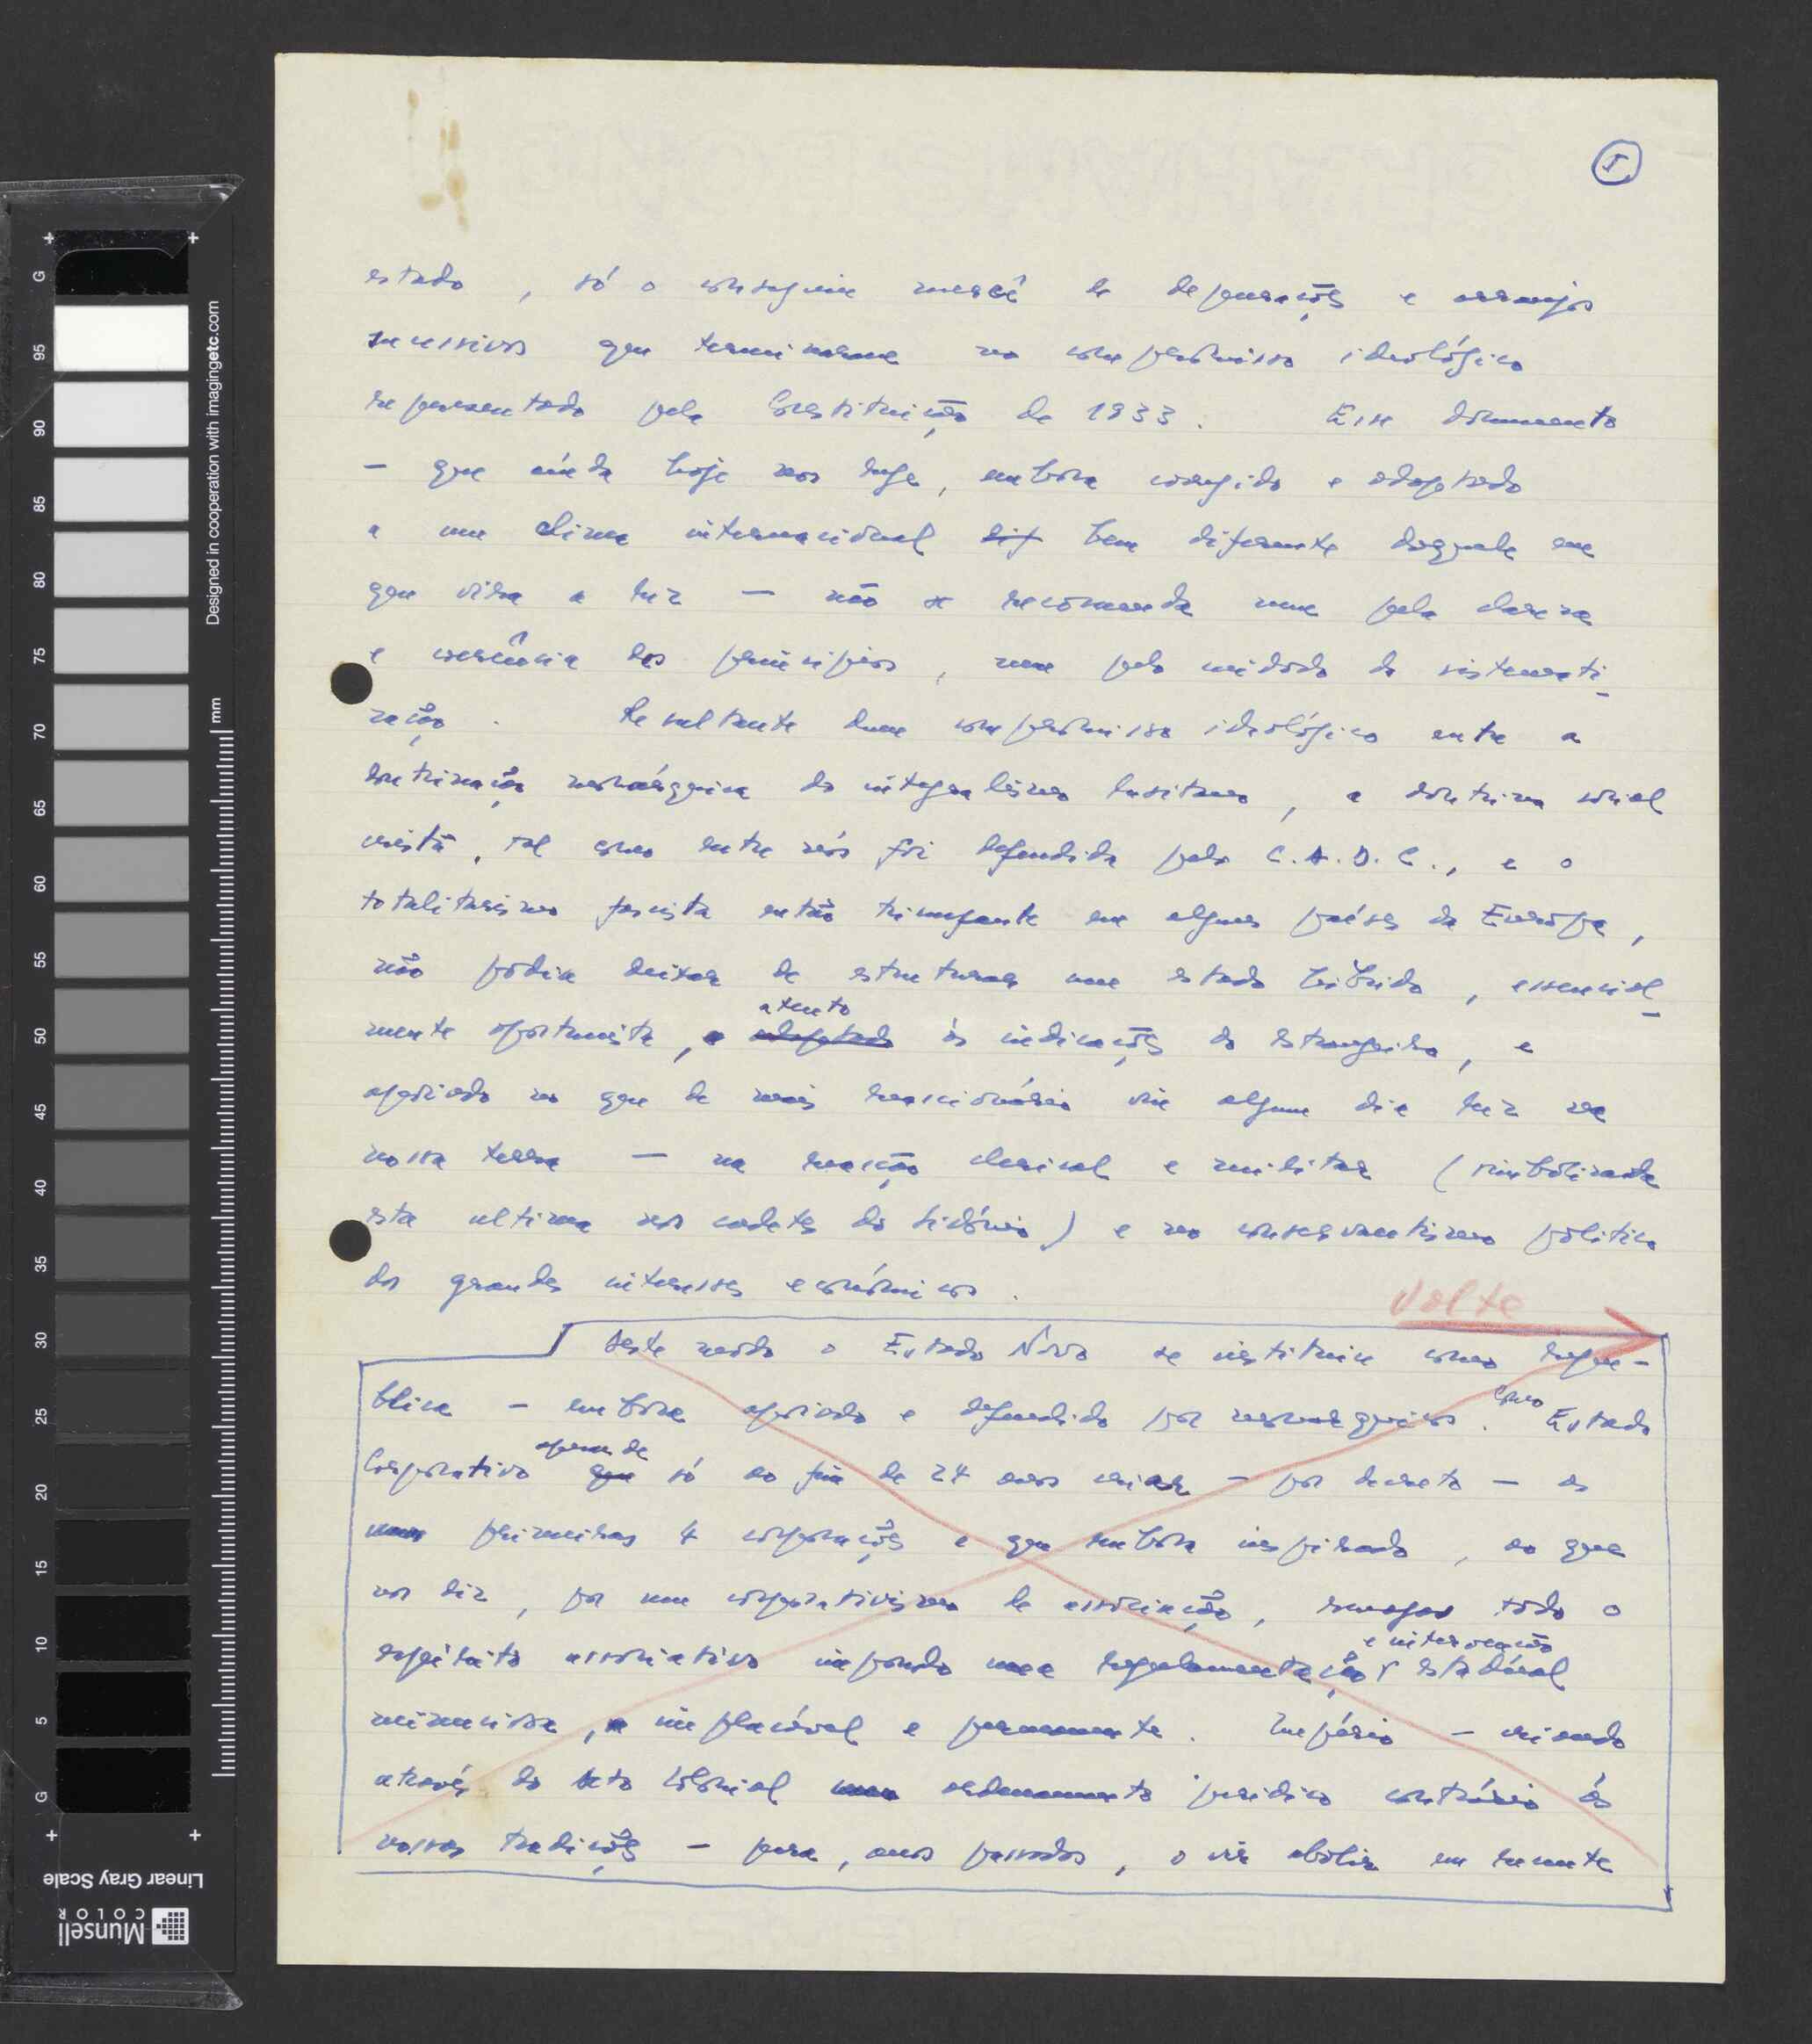 5
estado, só o conseguiu mercê de depurações e arranjos
sucessivos que terminaram no compromisso ideológico
representado pela Constituição de 1933. Esse documento
— que ainda hoje nos rege, embora corrigido e adaptado
a um clima internacional dif bem diferente daquele em
que vira a luz — não se recomenda nem pela clareza
e coerência dos princípios, nem pelo método de sistemati-
zação. Resultante dum compromisso ideológico entre a
doutrinação monárquica do integralismo lusitano, a doutrina social
cristã, tal como entre nós foi defendida pelo C.A.D.C., e o
totalitarismo fascista então triunfante em alguns países da Europa,
não podia deixar de estruturar um estado híbrido, essencial-
atento
mente oportunista, e adaptado às indicações do estrangeiro, e
apoiado no que de mais reaccionário viu algum dia luz na
nossa terra — na reacção clerical e militar (simbolizada
esta ultima nos cadetes do Sidónio) e no conservantismo politico
dos grandes interesses económicos.
Volte
Deste modo o Estado Novo se instituiu como repu-
blica — embora apoiado e defendido por monarquicos. Como Estado
apesar de
Corporativo que só ao fim de 24 anos criar — por decreto — as
primeiras 4 corporações e que embora inspirado, ao que
nos diz, por um corporativismo de associação, renegou todo o
e intervenção
espírito associativo impondo uma regulamentação estadual
minuciosa, e implacável e permanente. Império — criando
através do Acto Colonial um ordenamento juridico contrário às
nossas tradições — para, anos passados, o vir abolir
Designed in cooperation with imagingetc.com
mm
G
95
90
85
80
75
70
65
60
55
50
45
40
35
30
25
20
15
10
5
G
Linear Gray Scale
Munsell
COLOR